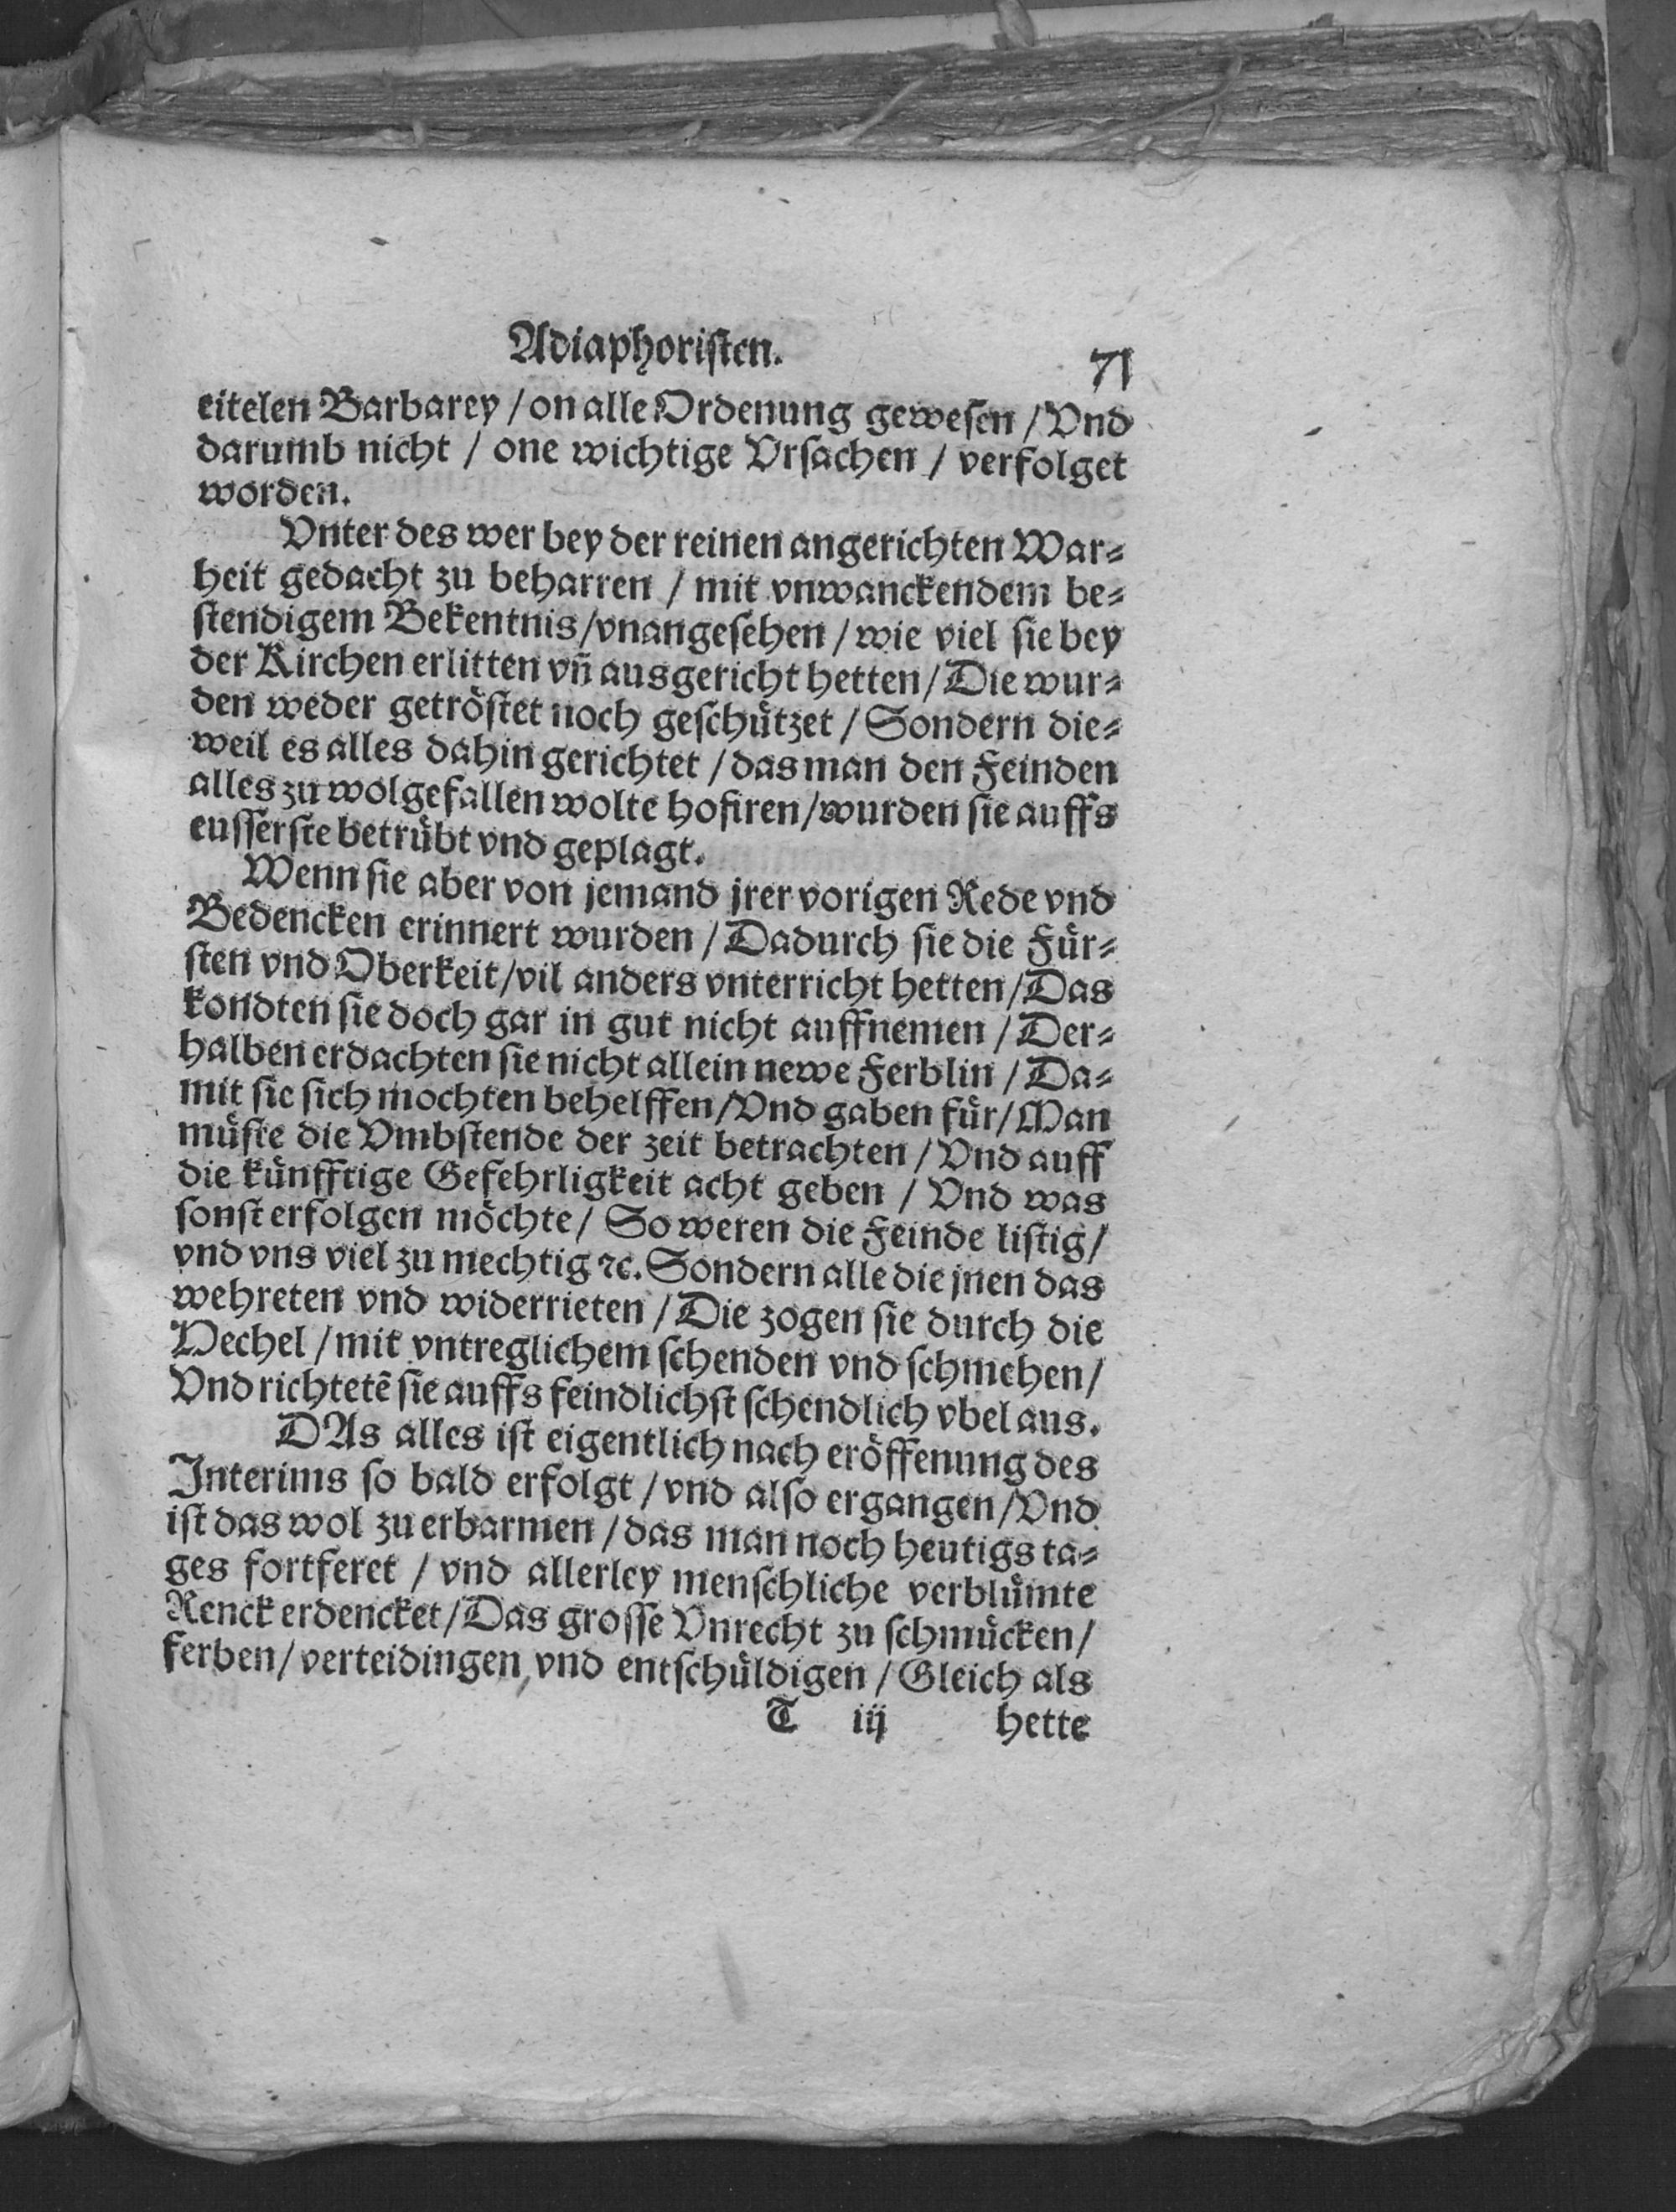 Adiaphoristen. 71
eitelen Barbarey / on alle Ordenung gewesen / Vnd
darumb nicht / one wichtige Vrsachen / verfolget
worden.
Vnter des wer bey der reinen angerichten War⸗
heit gedacht zu beharren / mit vnwanckendem be⸗
stendigem Bekentnis / vnangesehen / wie viel sie bey
der Kirchen erlitten vñ ausgericht hetten / Die wur⸗
den weder getröstet noch geschützet / Sondern die⸗
weil es alles dahin gerichtet / das man den Feinden
alles zu wolgefallen wolte hofiren / wurden sie auffs
eusserste betrübt vnd geplagt.
Wenn sie aber von jemand jrer vorigen Rede vnd
Bedencken erinnert wurden / Dadurch sie die Für⸗
sten vnd Oberkeit / vil anders vnterricht hetten / Das
kondten sie doch gar in gut nicht auffnemen / Der⸗
halben erdachten sie nicht allein newe Ferblin / Da⸗
mit sie sich mochten behelffen / Vnd gaben für / Man
müste die Vmbstende der zeit betrachten / Vnd auff
die künfftige Gefehrligkeit acht geben / Vnd was
sonst erfolgen möchte / So weren die Feinde listig /
vnd vns viel zu mechtig ꝛc. Sondern alle die jnen das
wehreten vnd widerrieten / Die zogen sie durch die
Hechel / mit vntreglichem schenden vnd schmehen /
Vnd richtetẽ sie auffs feindlichst schendlich vbel aus.
DAs alles ist eigentlich nach eröffenung des
Interims so bald erfolgt / vnd also ergangen / Vnd
ist das wol zu erbarmen / das man noch heutigs ta⸗
ges fortferet / vnd allerley menschliche verblümte
Renck erdencket / Das grosse Vnrecht zu schmücken /
ferben / verteidingen, vnd entschüldigen / Gleich als
T iij hette